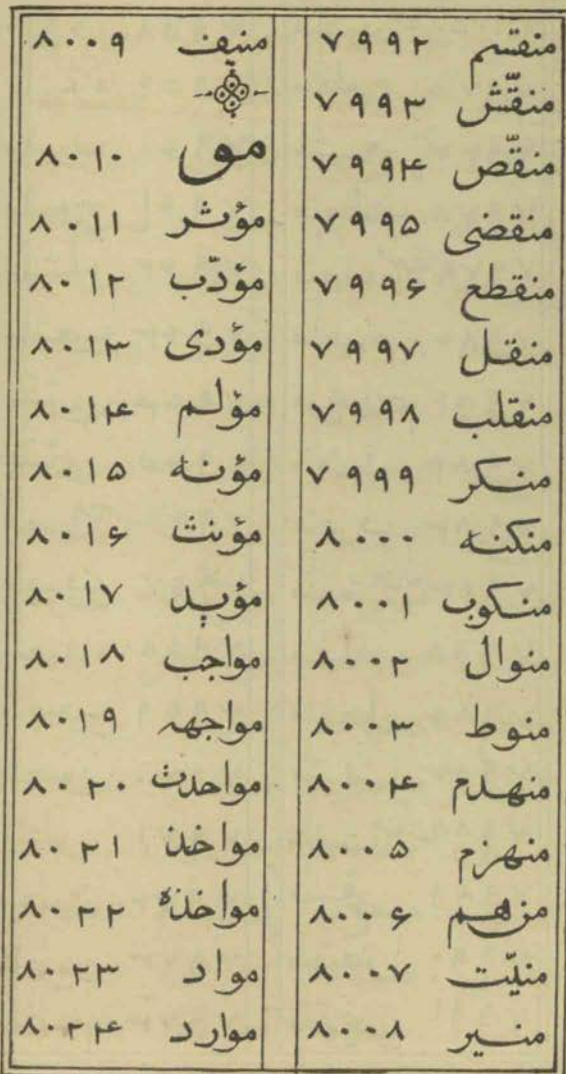 منقسم ۷۹۹۲
منقّش ۷۹۹۳
منقّص ۷۹۹۴
منقضی ۷۹۹۵
منقطع ۷۹۹۶
منقل ۷۹۹۷
منقلب ۷۹۹۸
منکر ۷۹۹۹
منکنه ۸۰۰۰
منکوب ۸۰۰۱
منوال ۸۰۰۲
منوط ۸۰۰۳
منهدم ۸۰۰۴
منهزم ۸۰۰۵
من هم ۸۰۰۶
منیّت ۸۰۰۷
منیر ۸۰۰۸
منیف ۸۰۰۹
مو ۸۰۱۰
مؤثر ۸۰۱۱
مؤدّب ۸۰۱۲
مؤدی ۸۰۱۳
مؤلم ۸۰۱۴
مؤنه ۸۰۱۵
مؤنث ۸۰۱۶
مؤید ۸۰۱۷
مواجب ۸۰۱۸
مواجهه ۸۰۱۹
مواحدت ۸۰۲۰
مواخذ ۸۰۲۱
مواخذه ۸۰۲۲
مواد ۸۰۲۳
موارد ۸۰۲۴